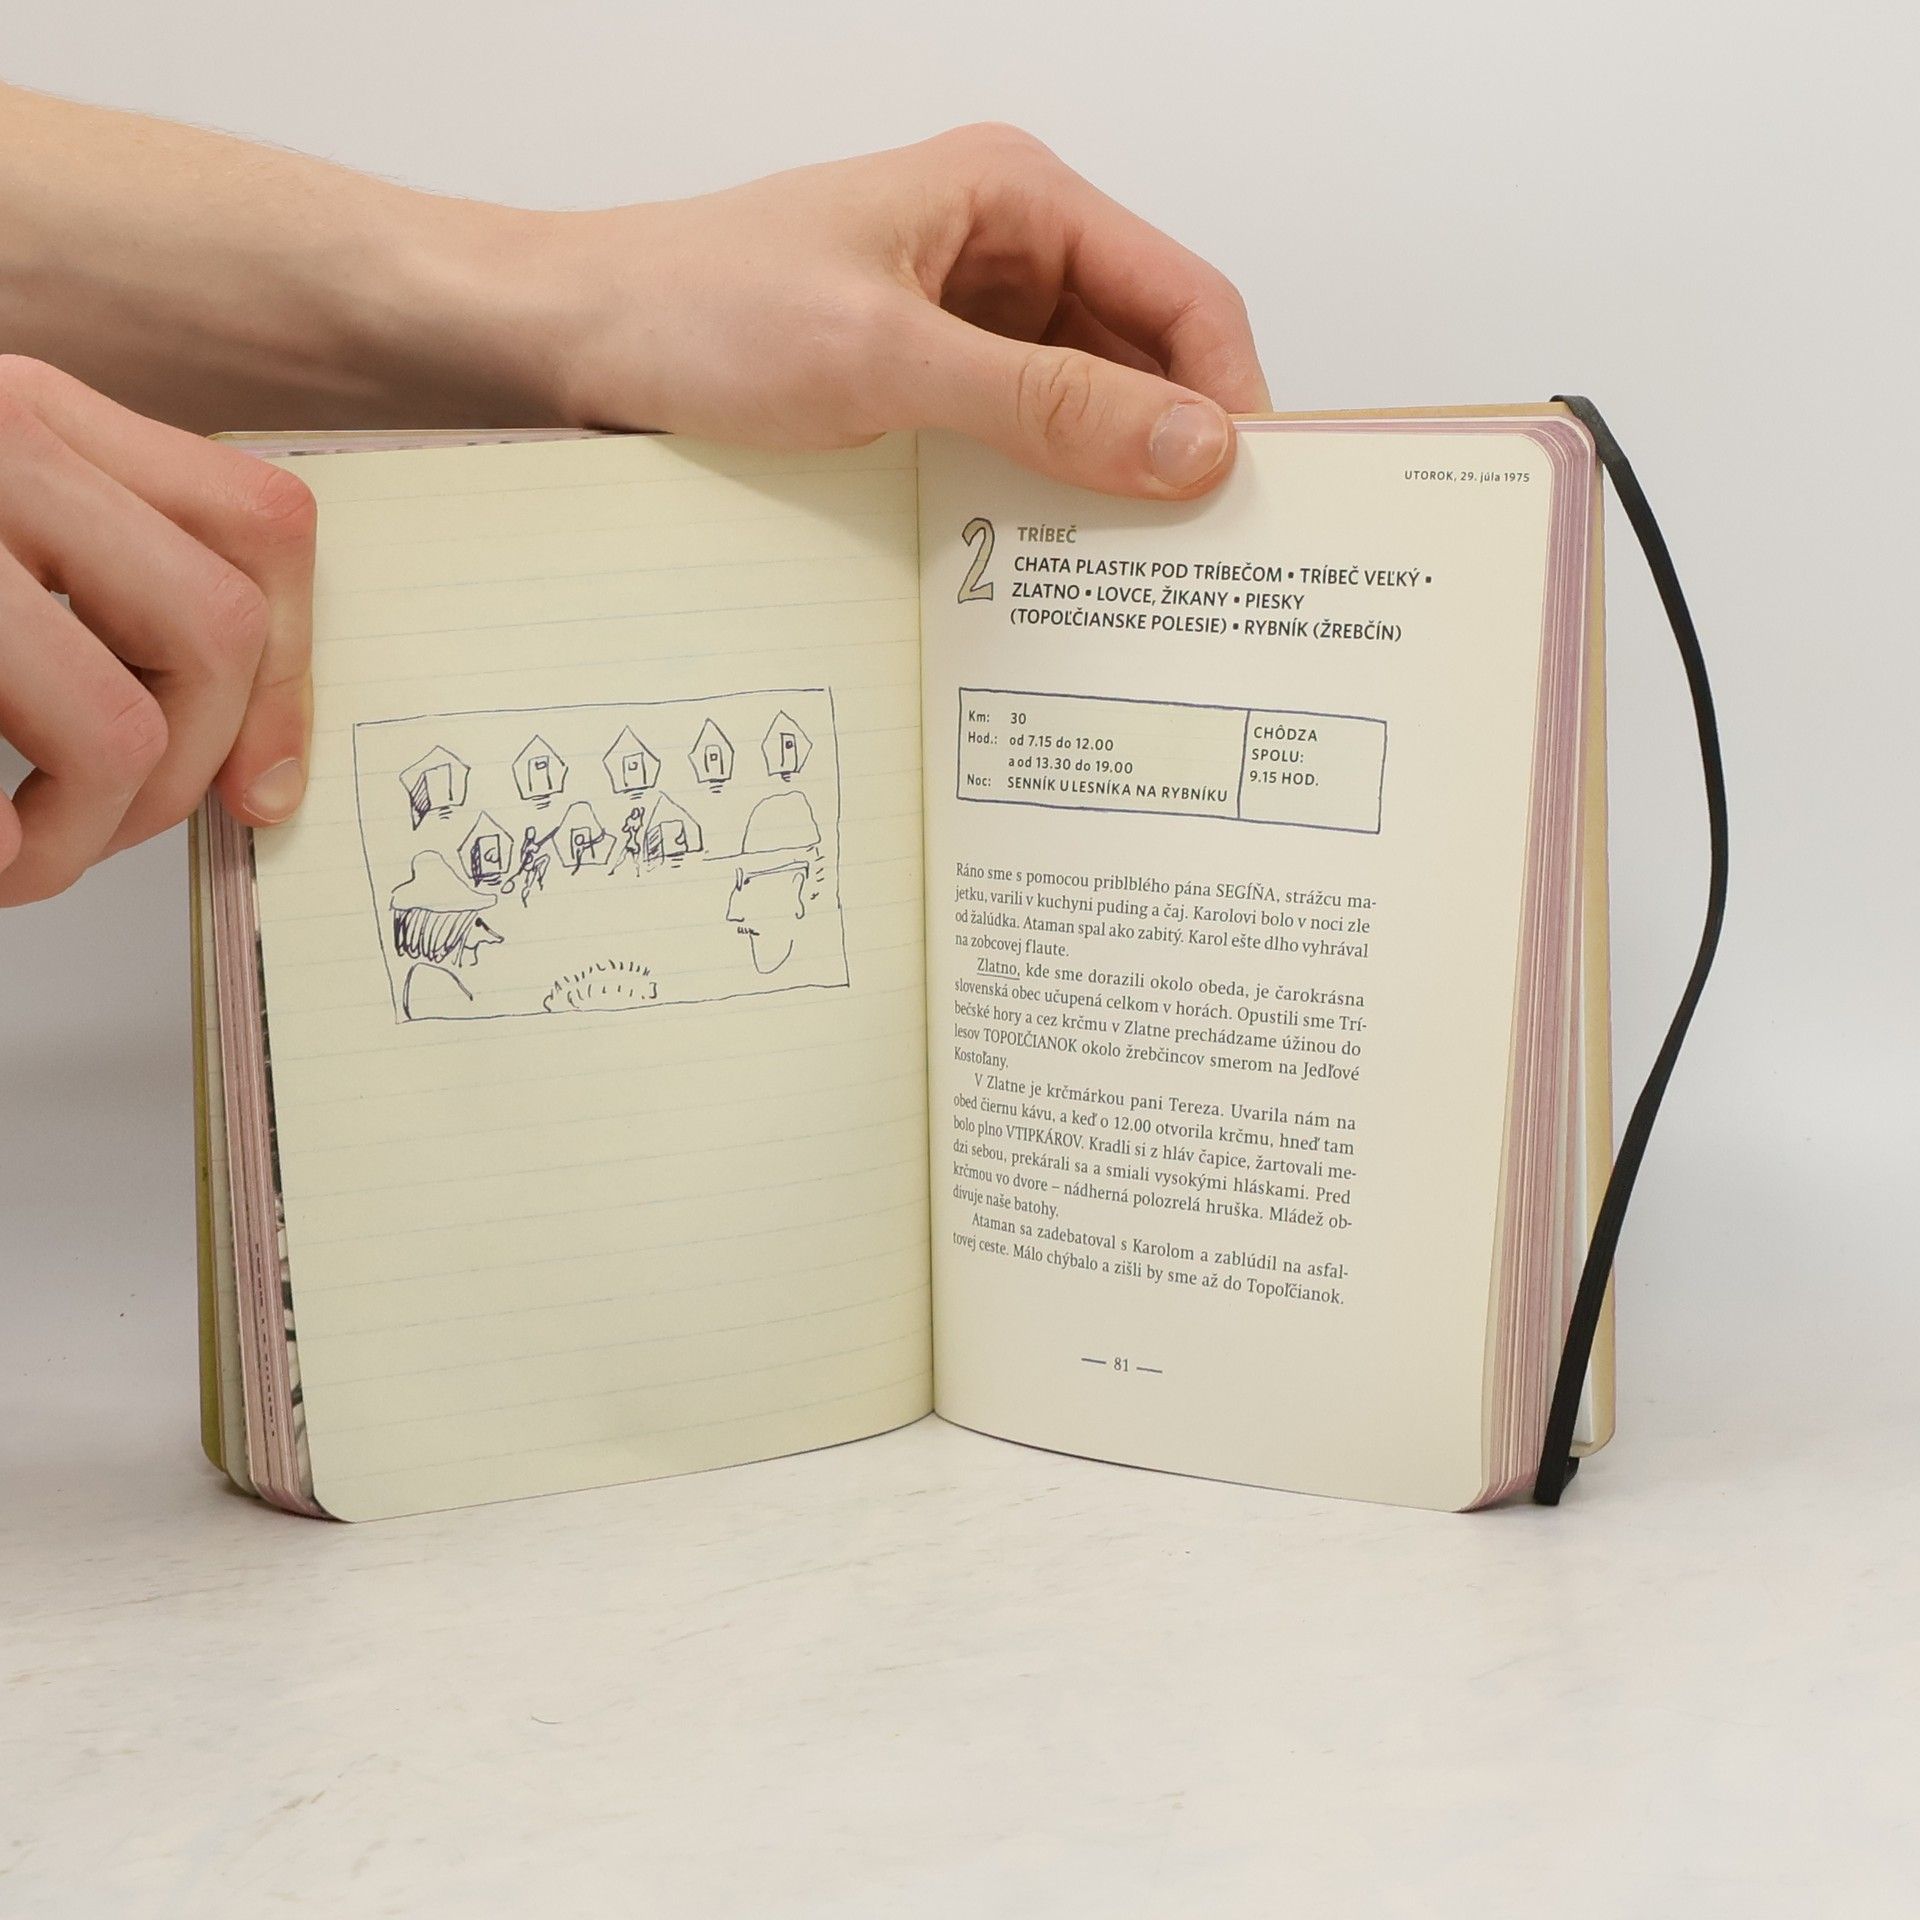 UTOROK, 29. júla 1975
2
TRÍBEČ
CHATA PLASTIK POD TRÍBEČOM • TRÍBEČ VEĽKÝ •
ZLATNO • LOVCE, ŽIKANY • PIESKY
(TOPOĽČIANSKE POLESIE) • RYBNÍK (ŽREBČÍN)
Km: 30
Hod.: od 7.15 do 12.00
a od 13.30 do 19.00
Noc: SENNÍK U LESNÍKA NA RYBNÍKU
CHÔDZA
SPOLU:
9.15 HOD.
Ráno sme s pomocou priblblého pána SEGÍŇA, strážcu ma-
jetku, varili v kuchyni puding a čaj. Karolovi bolo v noci zle
od žalúdka. Ataman spal ako zabitý. Karol ešte dlho vyhrával
na zobcovej flaute.
Zlatno, kde sme dorazili okolo obeda, je čarokrásna
slovenská obec učupená celkom v horách. Opustili sme Trí-
bečské hory a cez krčmu v Zlatne prechádzame úžinou do
lesov TOPOĽČIANOK okolo žrebčincov smerom na Jedľové
Kostoľany.
V Zlatne je krčmárkou pani Tereza. Uvarila nám na
obed čiernu kávu, a keď o 12.00 otvorila krčmu, hneď tam
bolo plno VTIPKÁROV. Kradli si z hláv čapice, žartovali me-
dzi sebou, prekárali sa a smiali vysokými hláskami. Pred
krčmou vo dvore – nádherná polozrelá hruška. Mládež ob-
divuje naše batohy.
Ataman sa zadebatoval s Karolom a zablúdil na asfal-
tovej ceste. Málo chýbalo a zišli by sme až do Topoľčianok.
— 81 —